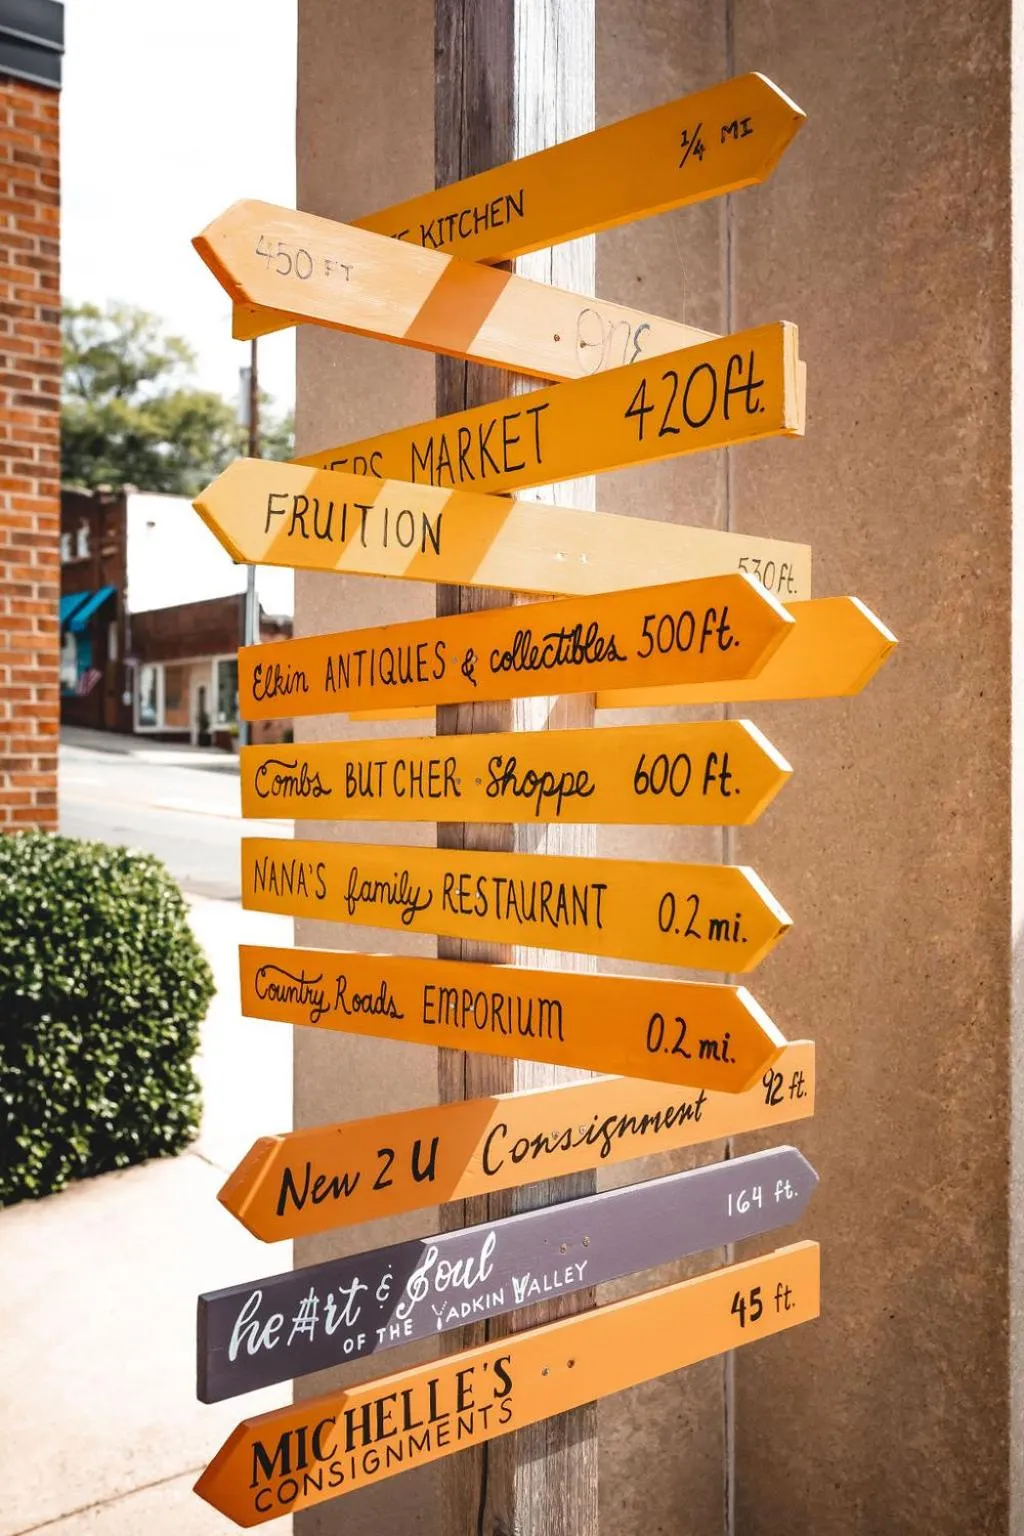 KITCHEN 1/4 MI
450 FT ONE
MARKET 420ft.
FRUITION 530ft.
Elkin ANTIQUES & collectibles 500ft.
Combs BUTCHER Shoppe 600 ft.
NANA'S family RESTAURANT 0.2 mi.
Country Roads EMPORIUM 0.2 mi.
New 2 U Consignment 92 ft.
heArt & Soul 164 ft.
OF THE YADKIN VALLEY
MICHELLE'S 45 ft.
CONSIGNMENTS